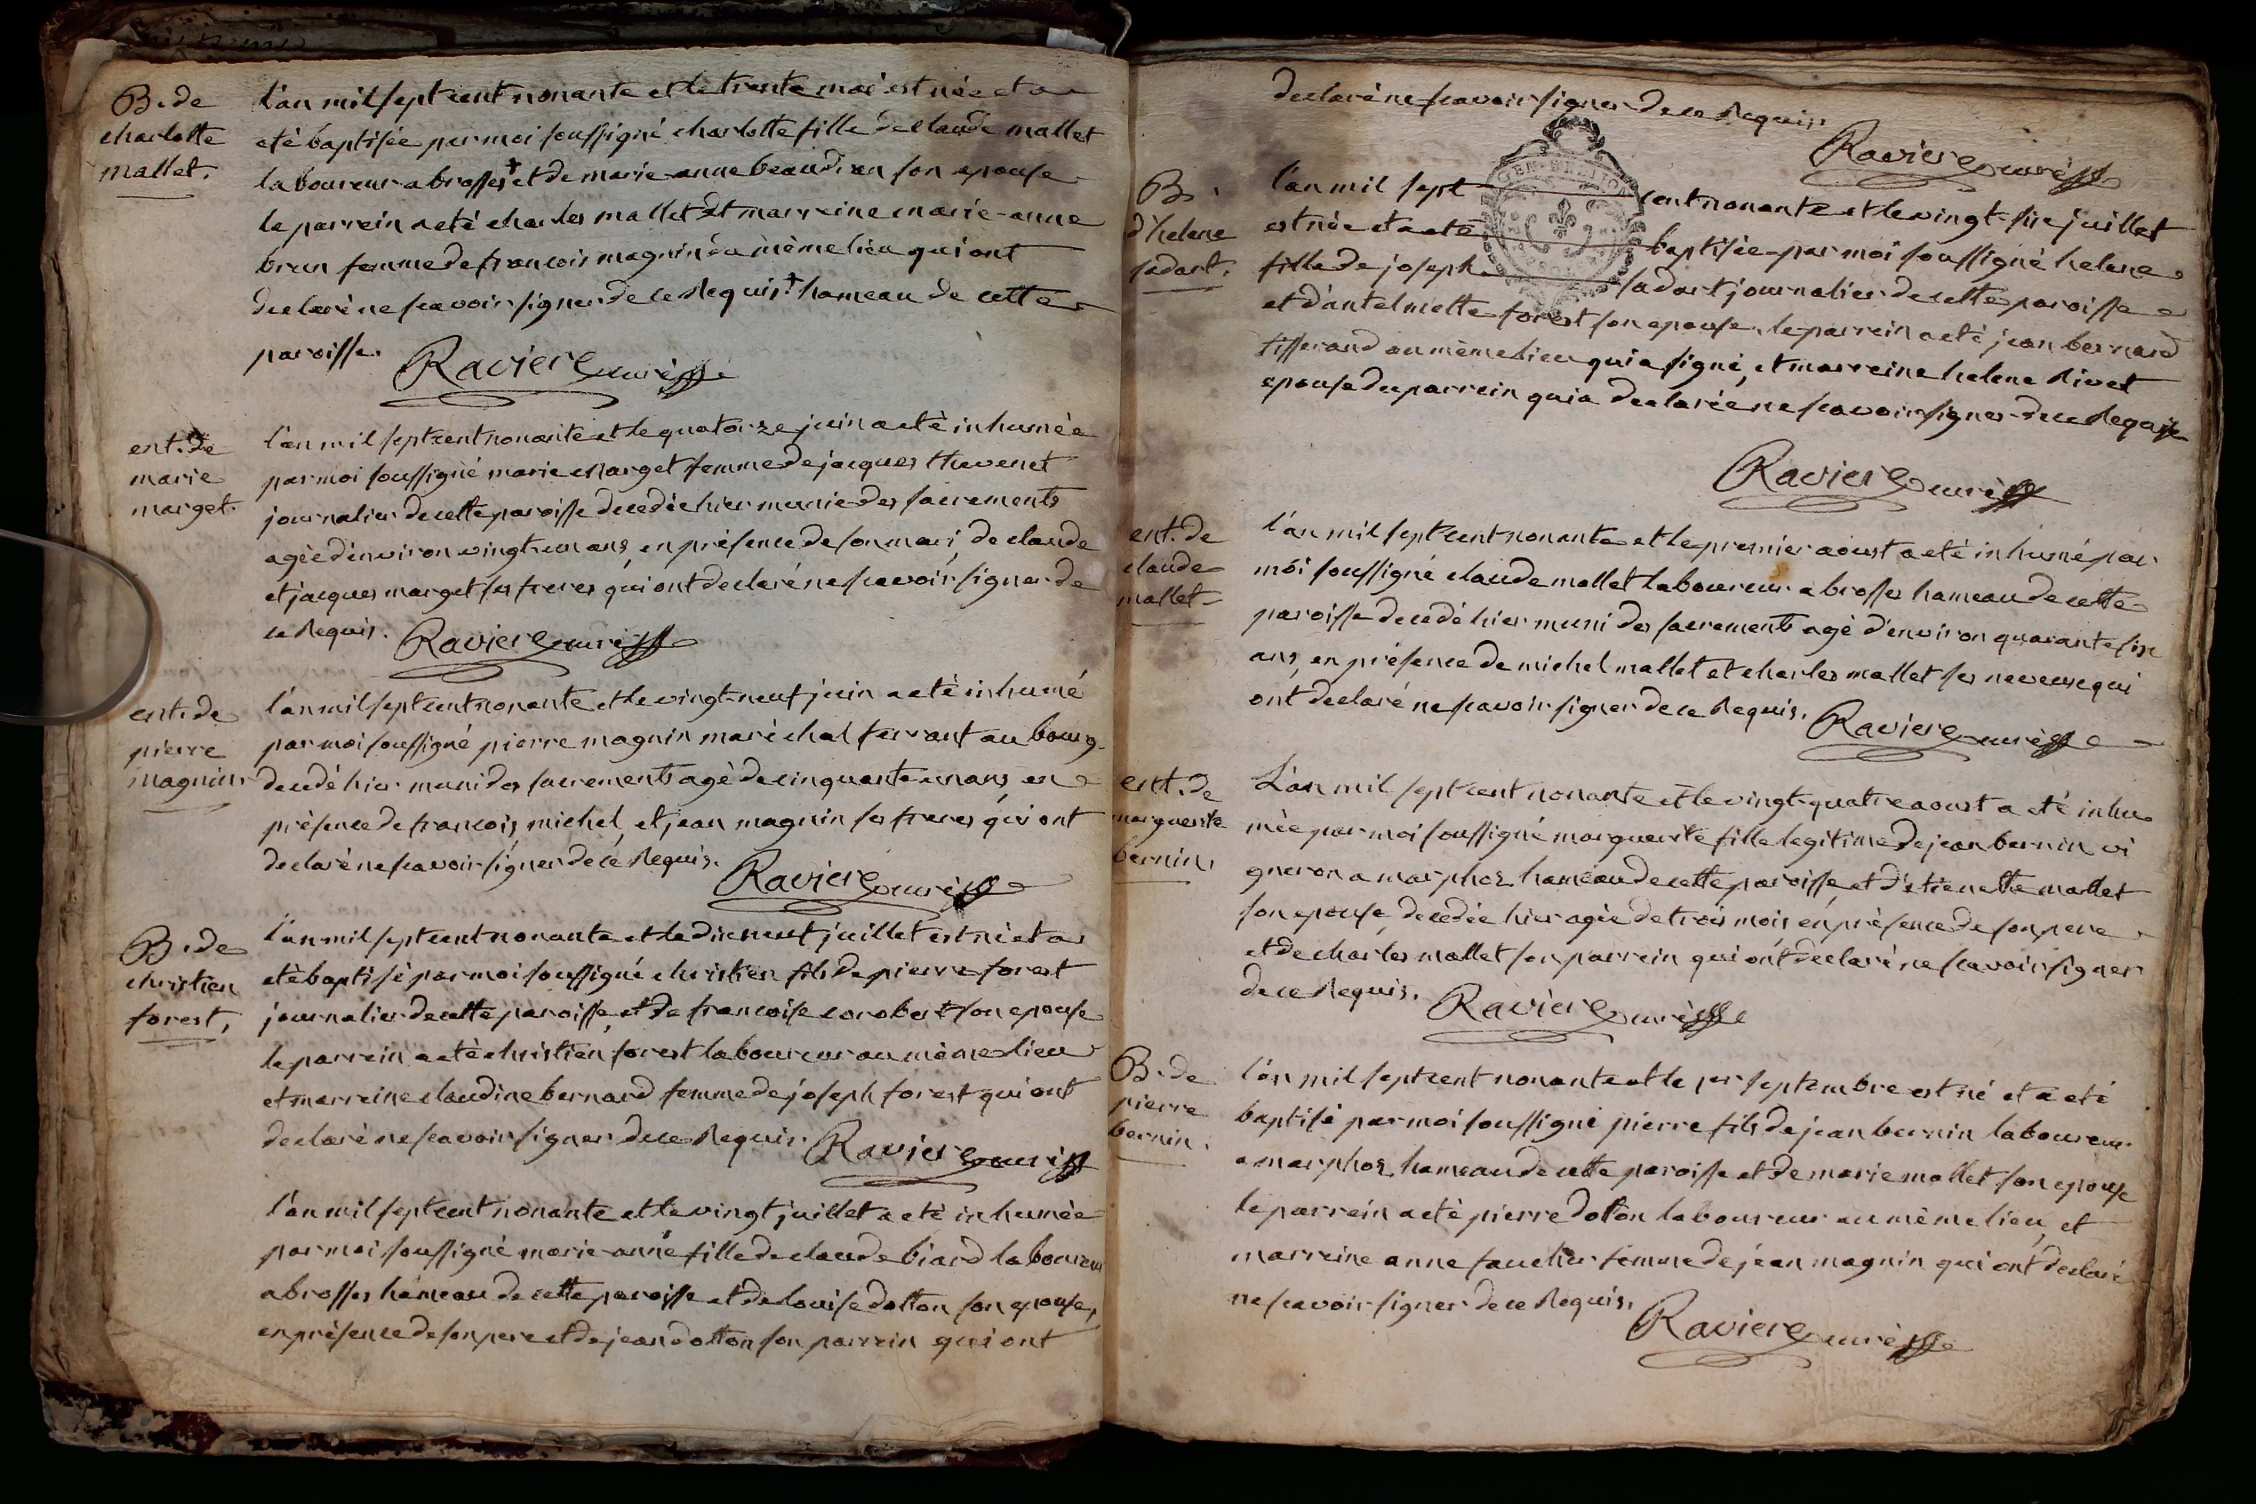 B. de
charlotte
mallet.
l'an mil sept cent nonante et le trente mai est née et a
eté baptisée par moi soussigné charlotte fille de claude mallet
laboureur a brosses + et de marie-anne beaudran son epouse
le parrein a eté charles mallet et marreine marie-anne
brun femme de francois magnin du même lieu qui ont
declaré ne scavoir signer de ce Requis. + hameau de cette
paroisse. Raviere curé
ent. de
marie
marget.
l'an mil sept cent nonante et le quatorze juin a eté inhumée
par moi soussigné marie marget femme de jacques thevenet
journalier de cette paroisse decedée hier munie des sacrements
agée d'environ vingt-un ans, en présence de son mari, de claude
et jacques marget ses freres qui ont declaré ne scavoir signer de
ce Requis. Raviere curé
ent. de
pierre
magnin.
l'an mil sept cent nonante et le vingt-neuf juin a eté inhumé
par moi soussigné pierre magnin maréchal ferrant au bourg
decedé hier muni des sacrements agé de cinquante un ans, en
présence de francois, michel, et jean magnin ses freres qui ont
declaré ne scavoir signer de ce Requis.
Raviere curé
B. de
christien
forest,
l'an mil sept cent nonante et le dix neuf juillet est né et a
eté baptisé par moi soussigné christien fils de pierre forest
journalier de cette paroisse, et de francoise corobert son epouse
le parrein a eté christien forest laboureur au même lieu
et marreine claudine bernard femme de joseph forest qui ont
declaré ne scavoir signer de ce Requis Raviere curé
l'an mil sept cent nonante et le vingt juillet a eté inhumée
par moi soussigné marie-anne fille de claude biard laboureur
a brosses hameau de cette paroisse et de louise dotton son epouse,
en présence de son pere et de jean dotton son parrein qui ont
declaré ne scavoir signer de ce Requis.
Raviere curé
B.
d'helene
sadart.
l'an mil sept cent nonante et le vingt-six juillet
est née et a eté baptisée par moi soussigné helene
fille de joseph sadart journalier de cette paroisse
et d'antelmette forest son epouse, le parrein a eté jean bernard
tisserand au même lieu qui a signé, et marreine helene Rivet
epouse du parrein qui a declarée ne scavoir signer de ce Requise
Raviere curé
ent. de
claude
mallet
l'an mil sept cent nonante et le premier aoust a eté inhumé par
moi soussigné claude mallet laboureur a brosses hameau de cette
paroisse decedé hier muni des sacrements agé d'environ quarante six
ans, en présence de michel mallet et charles mallet ses neveux qui
ont declaré ne scavoir signer de ce Requis. Raviere curé
ent. de
marguerite
bernin.
L'an mil sept cent nonante et le vingt-quatre aoust a eté inhu-
mée par moi soussigné marguerite fille legitime de jean bernin vi
gneron a marphoz hameau de cette paroisse, et d'etienette mallet
son epouse, decedée hier agée de trois mois en présence de son pere
et de charles mallet son parrein qui ont declaré ne scavoir signer
de ce Requis. Raviere curé
B. de
pierre
bernin.
l'an mil sept cent nonante et le 1er septembre est né et a eté
baptisé par moi soussigné pierre fils de jean bernin laboureur
a marphoz hameau de cette paroisse et de marie mallet son epouse
le parrein a eté pierre dotton laboureur au même lieu, et
marreine anne faucher femme de jean magnin qui ont declaré
ne scavoir signer de ce Requis.
Raviere curé